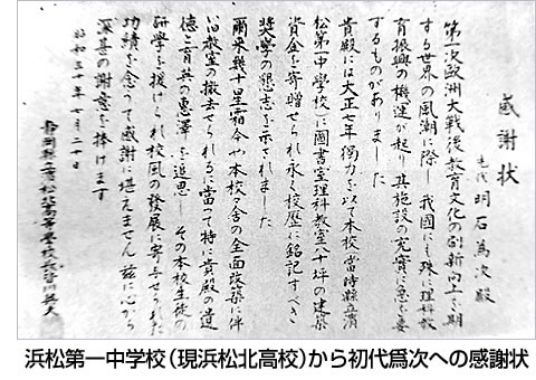 感謝状
先代 明石爲次殿
第一次歐洲大戰後教育文化の刷新向上を期
する世界の風潮に際し我國にも殊に理科教
育振興の機運が起り其施設の充實に急を要
するものがありました
貴殿には大正七年獨力を以て本校(當時縣立濱
松第一中學校)に圖書室理科教室八十坪の建築
資金を寄贈せられ永く校歴に銘記すべき
奨學の懇志を示されました
爾来幾十星霜今や本校々舎の全面改築に伴
い旧教室の撤去せられるに當って特に貴殿の遺
徳と育英の恵澤を追思しその本校生徒の
研學を援けられ校風の發展に寄与せられた
功績を念うて感謝に堪えません茲に心から
深甚の謝意を捧げます
昭和三十年七月二十日
静岡縣立濱松北高等學校長
浜松第一中学校（現浜松北高校）から初代爲次への感謝状